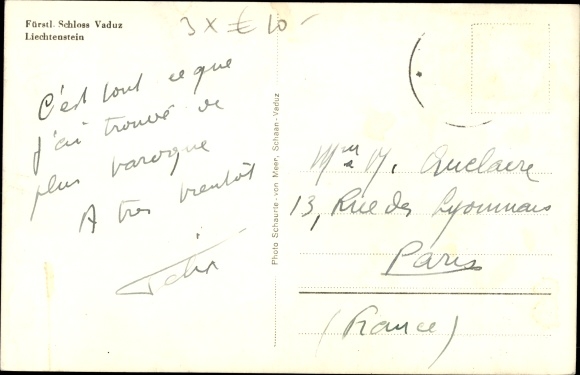 Fürstl. Schloss Vaduz
Liechtenstein
3 x € 10-
C'est tout ce que
j'ai trouvé de
plus baroque
A très bientôt
Photo Schaurte-von Meer, Schaan-Vaduz
13, Rue des Lyonnais
Paris
(France)